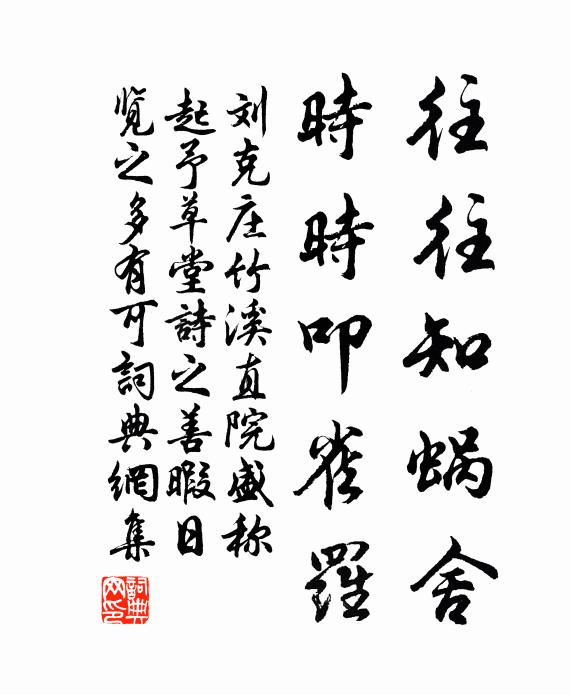 往往知蜗舍
時時叩雀羅
刘克庄竹溪直院盛称
起予草堂詩之善暇日
览之多有可詞典網集
詞典
网印